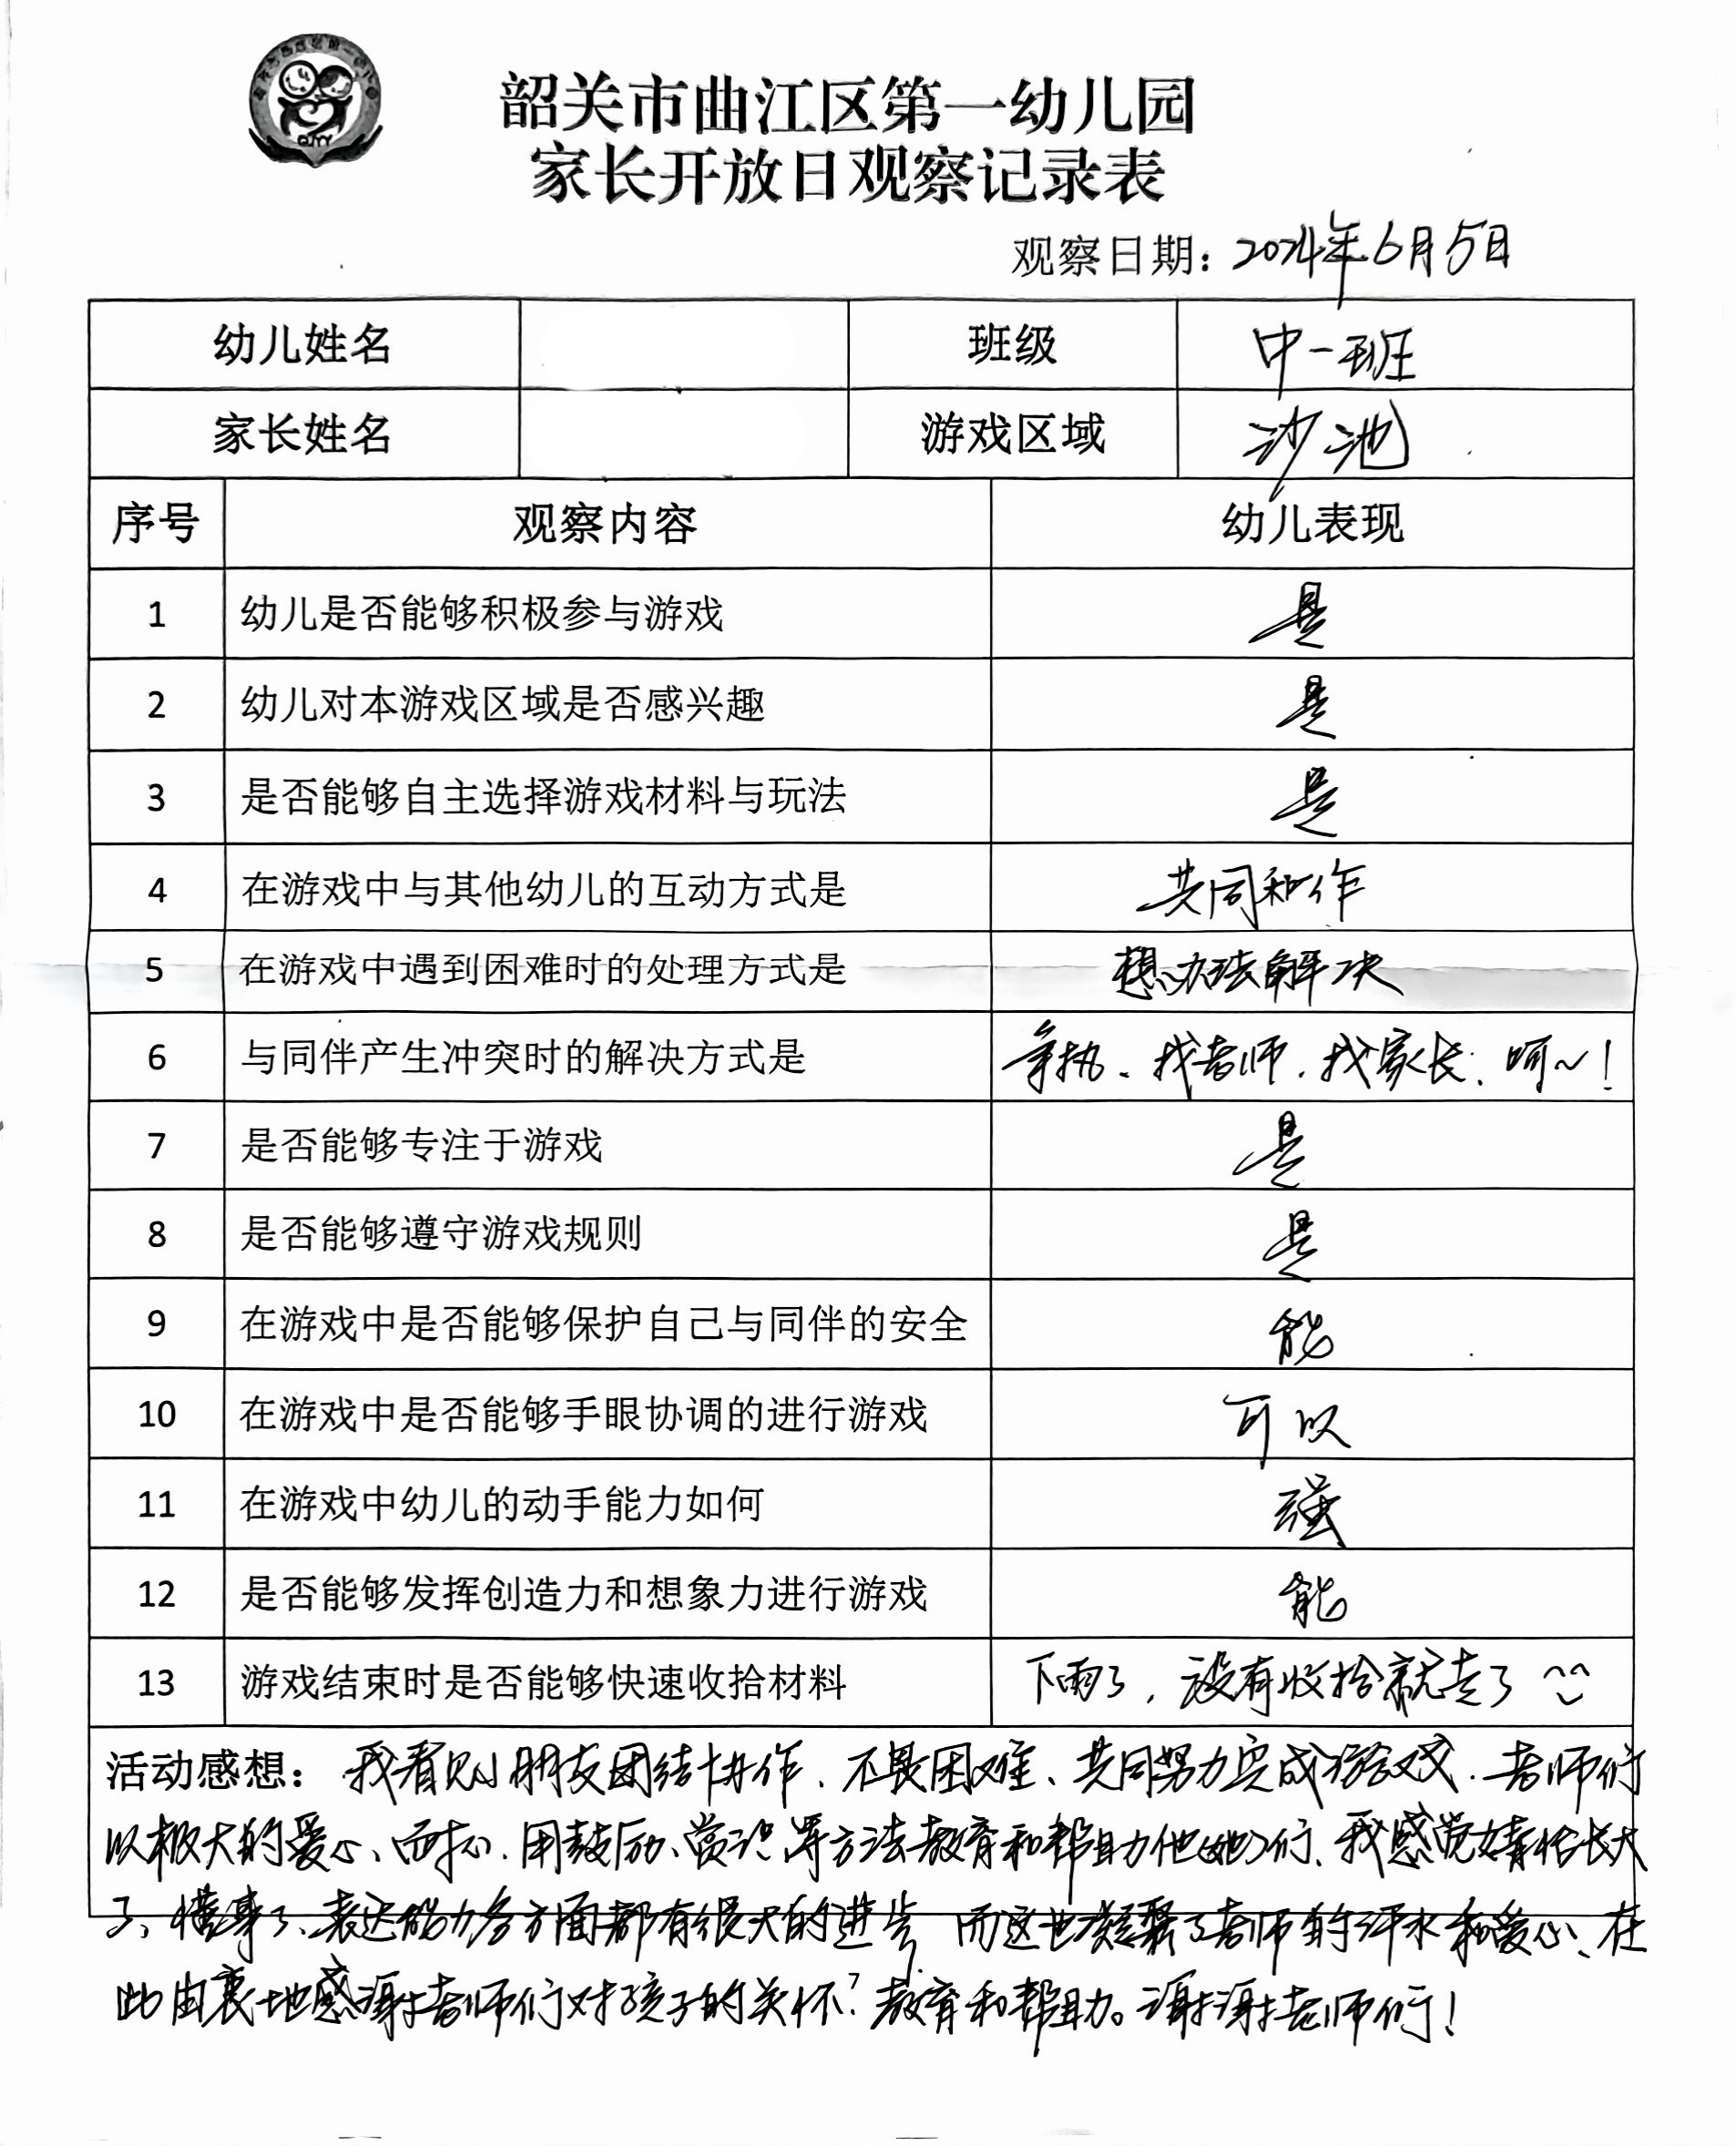 韶关市曲江区第一幼儿园
家长开放日观察记录表
观察日期：2024年6月5日
幼儿姓名 班级 中一班
家长姓名 游戏区域 沙池
序号 观察内容 幼儿表现
1 幼儿是否能够积极参与游戏 是
2 幼儿对本游戏区域是否感兴趣 是
3 是否能够自主选择游戏材料与玩法 是
4 在游戏中与其他幼儿的互动方式是 共同和作
5 在游戏中遇到困难时的处理方式是 想办法解决
6 与同伴产生冲突时的解决方式是 争执、找老师、找家长、呵~！
7 是否能够专注于游戏 是
8 是否能够遵守游戏规则 是
9 在游戏中是否能够保护自己与同伴的安全 能
10 在游戏中是否能够手眼协调的进行游戏 可以
11 在游戏中幼儿的动手能力如何 强
12 是否能够发挥创造力和想象力进行游戏 能
13 游戏结束时是否能够快速收拾材料 下雨了，没有收拾就走了
活动感想：我看见小朋友团结协作、不畏困难、共同努力完成游戏．老师们
以极大的爱心、耐心．用鼓励、赏识等方法教育和帮助他（她）们、我感觉 长大
了、懂事了、表达能力各方面都有很大的进步，而这也凝聚了老师的汗水和爱心、在
此由衷地感谢老师们对孩子的关怀？教育和帮助。谢谢老师们！